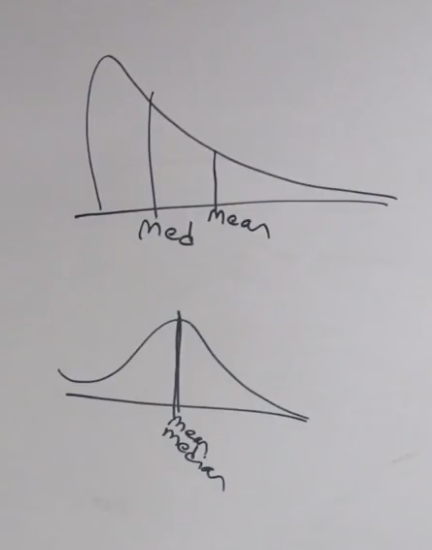 Med Mean
mean
median